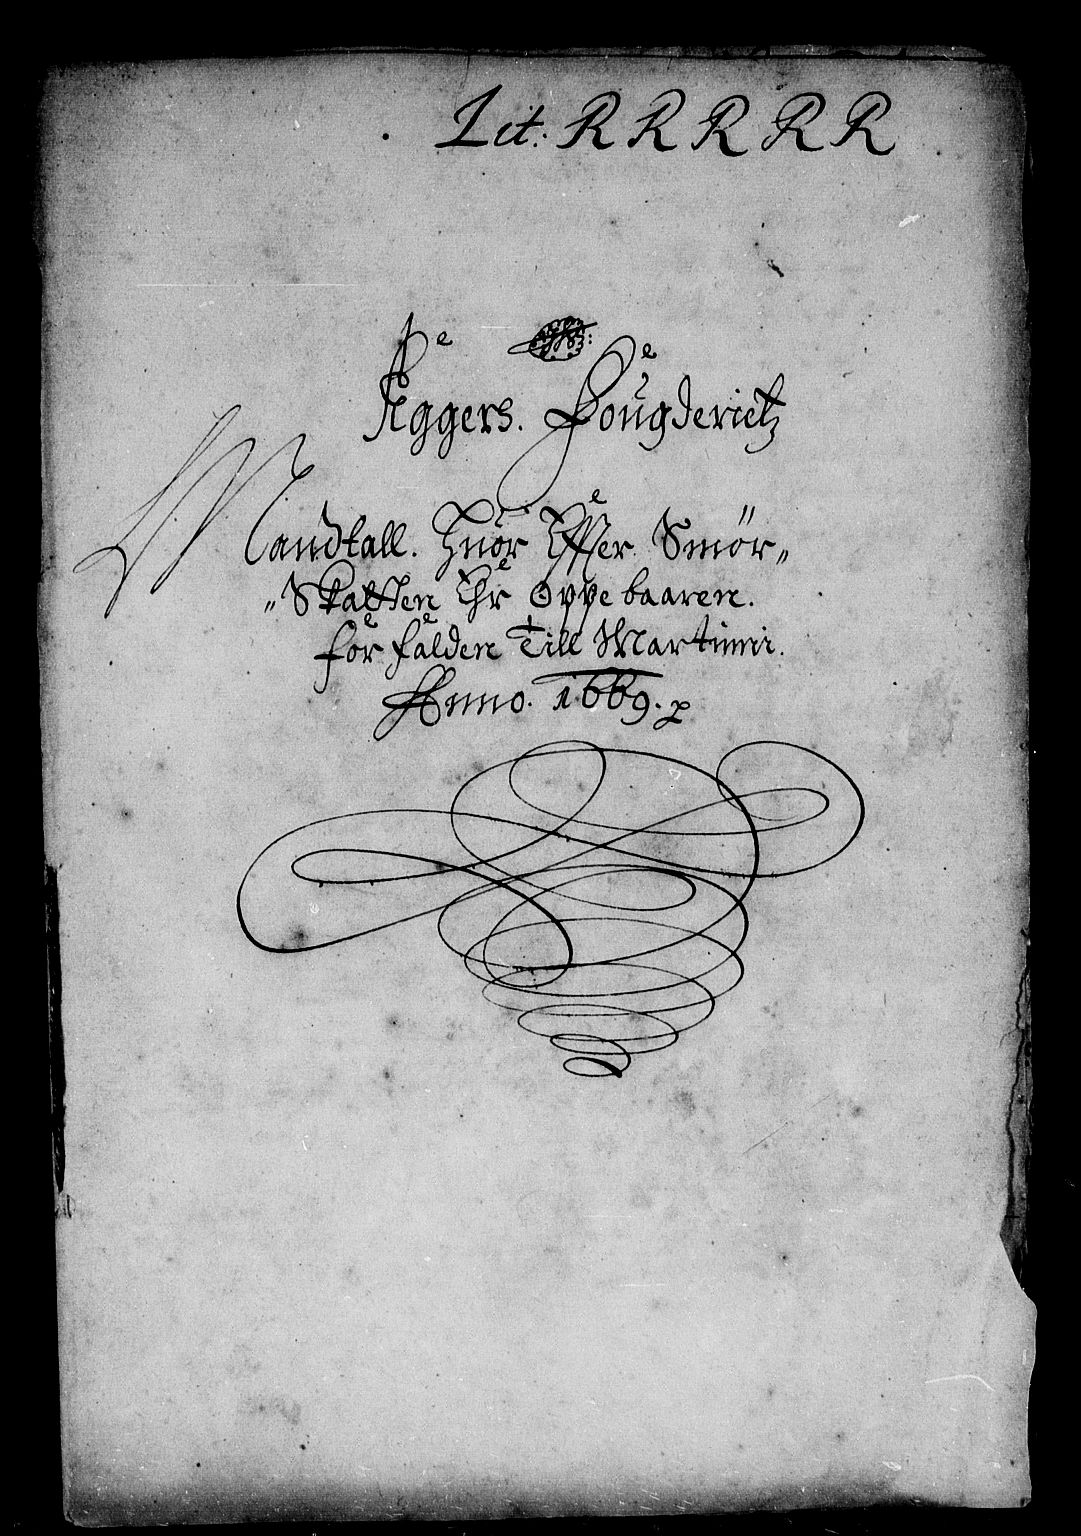 Lit: R R R R R
Aggers. Fougderietz
Mandtall. Huor Effter Smör„
„Skatten Ehr Oppebaaren.
for falden Till Martinni.
Anno. 1669. p